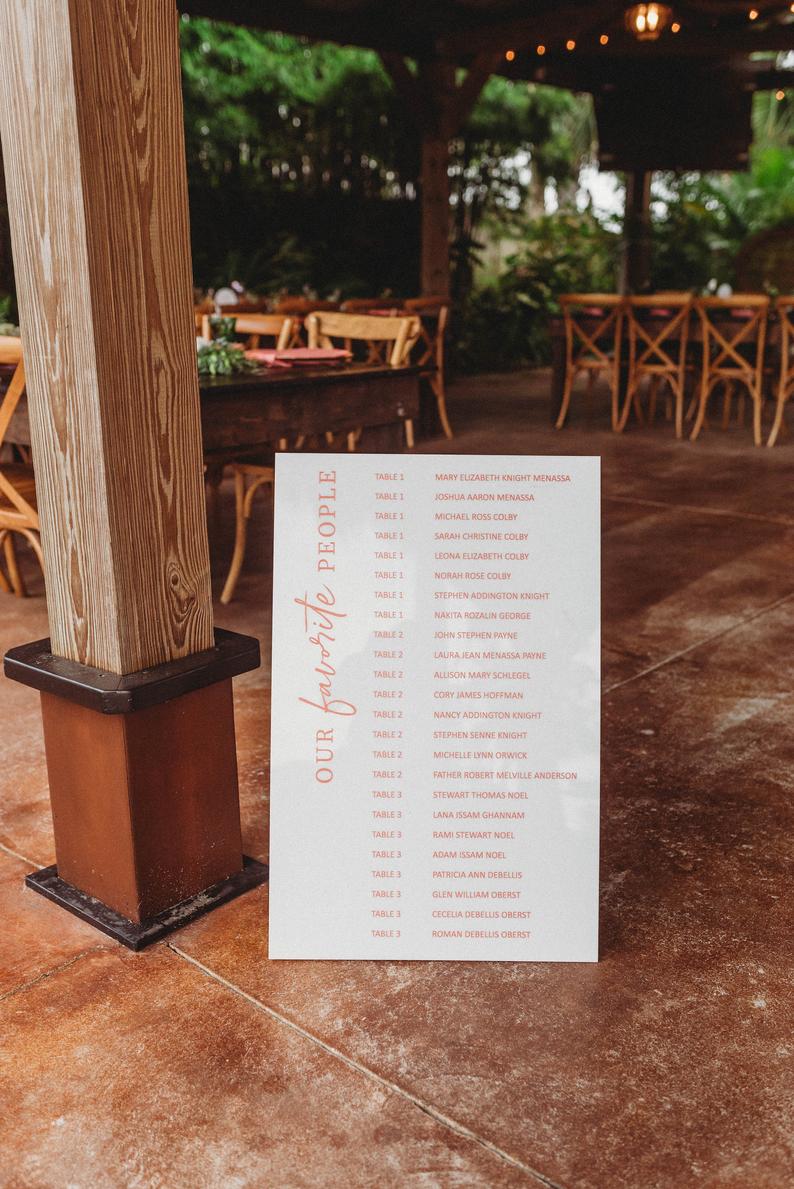 OUR favorite PEOPLE
TABLE 1 MARY ELIZABETH KNIGHT MENASSA
TABLE 1 JOSHUA AARON MENASSA
TABLE 1 MICHAEL ROSS COLBY
TABLE 1 SARAH CHRISTINE COLBY
TABLE 1 LEONA ELIZABETH COLBY
TABLE 1 NORAH ROSE COLBY
TABLE 1 STEPHEN ADDINGTON KNIGHT
TABLE 1 NAKITA ROZALIN GEORGE
TABLE 2 JOHN STEPHEN PAYNE
TABLE 2 LAURA JEAN MENASSA PAYNE
TABLE 2 ALLISON MARY SCHLEGEL
TABLE 2 CORY JAMES HOFFMAN
TABLE 2 NANCY ADDINGTON KNIGHT
TABLE 2 STEPHEN SENNE KNIGHT
TABLE 2 MICHELLE LYNN ORWICK
TABLE 2 FATHER ROBERT MELVILLE ANDERSON
TABLE 3 STEWART THOMAS NOEL
TABLE 3 LANA ISSAM GHANNAM
TABLE 3 RAMI STEWART NOEL
TABLE 3 ADAM ISSAM NOEL
TABLE 3 PATRICIA ANN DEBELLIS
TABLE 3 GLEN WILLIAM OBERST
TABLE 3 CECELIA DEBELLIS OBERST
TABLE 3 ROMAN DEBELLIS OBERST